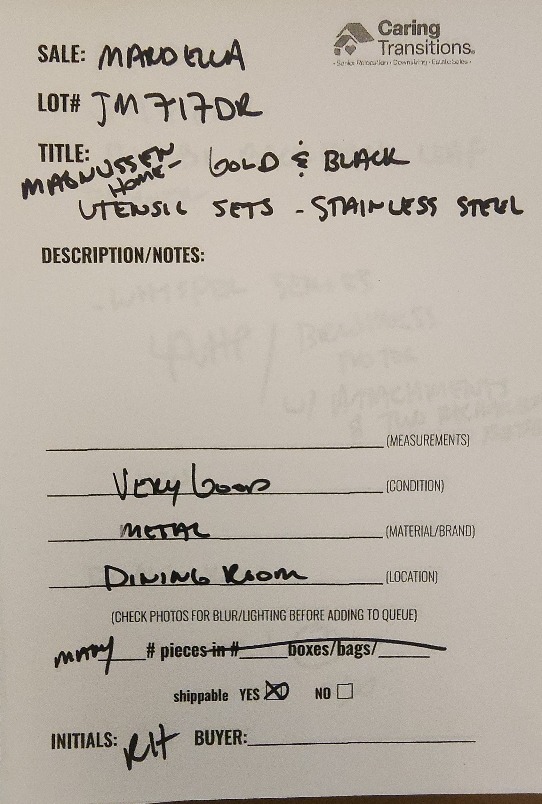 Caring
Transitions®
- Senior Relocation • Downsizing • Estate Sales -
SALE: MARDELLA
LOT# JM717DR
TITLE: MAGNUSSEN HOME - GOLD & BLACK
UTENSIL SETS - STAINLESS STEEL
DESCRIPTION/NOTES:
(MEASUREMENTS)
VERY GOOD (CONDITION)
METAL (MATERIAL/BRAND)
DINING ROOM (LOCATION)
(CHECK PHOTOS FOR BLUR/LIGHTING BEFORE ADDING TO QUEUE)
MANY # pieces in # boxes/bags/
shippable YES NO
INITIALS: RH BUYER: